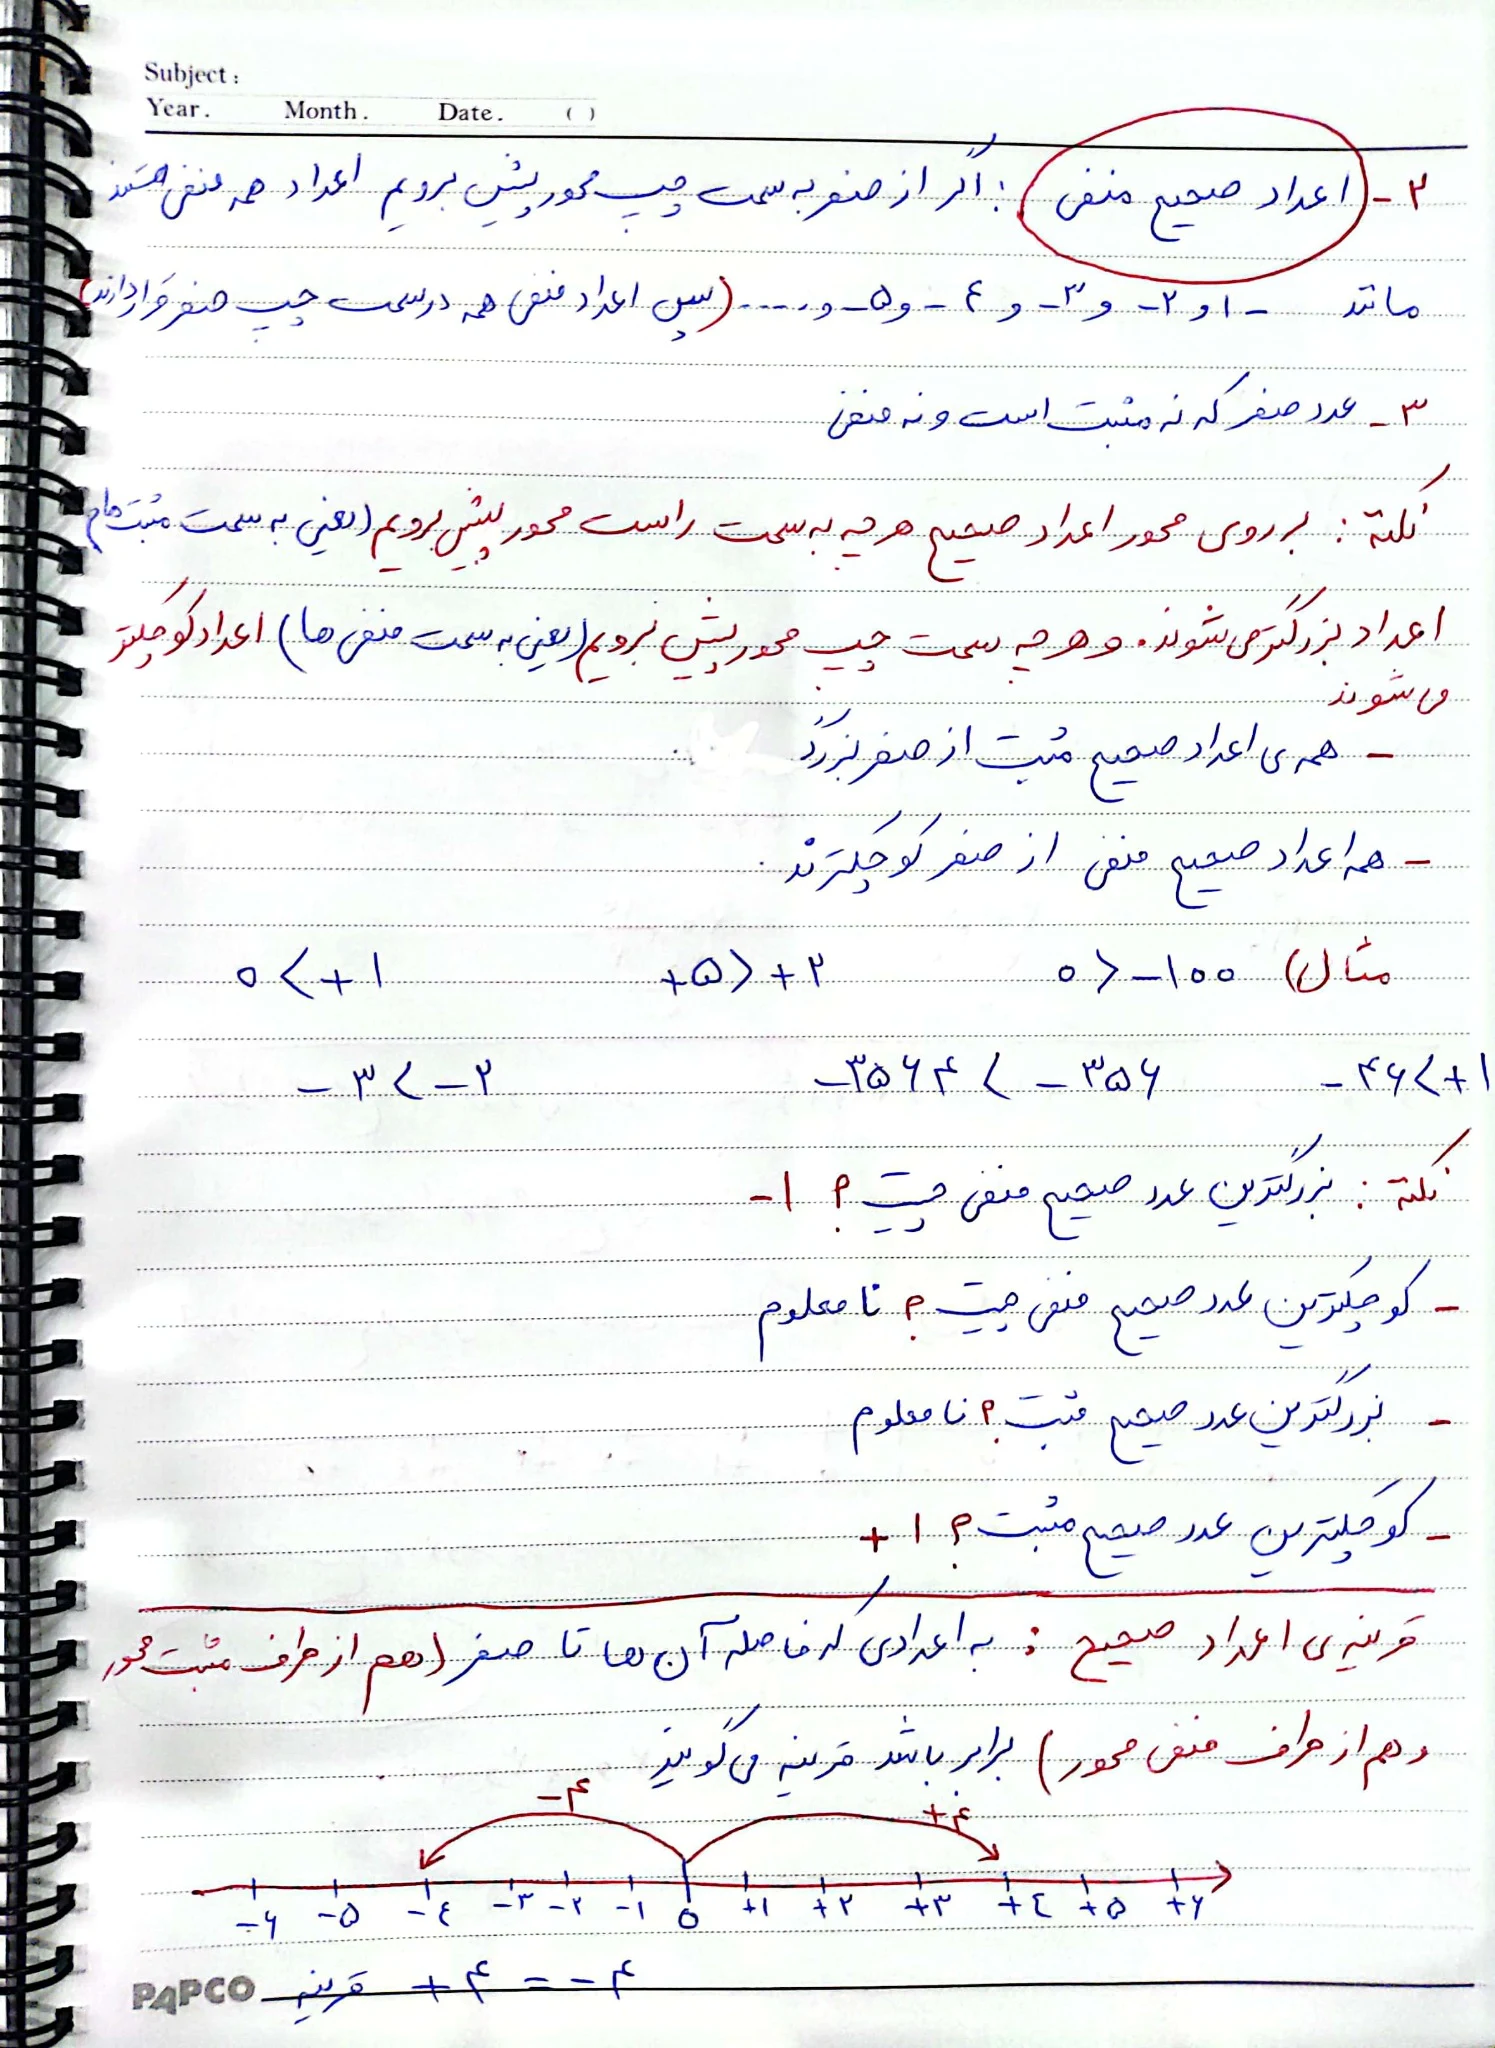 Subject :
Year . Month . Date . ( )
۲- اعداد صحیح منفی : اگر از صفر به سمت چپ محور پیش برویم اعداد همه منفی هستند
مانند -۱ و -۲ و -۳ و -٤ و -۵ و ..... (پس اعداد منفی همه در سمت چپ صفر قرار دارند)
۳- عدد صفر که نه مثبت است و نه منفی
نکته : بر روی محور اعداد صحیح هرچه به سمت راست محور پیش برویم (یعنی به سمت مثبت ها)
اعداد بزرگتر می شوند. و هرچه سمت چپ محور پیش برویم (یعنی به سمت منفی ها) اعداد کوچکتر
می شوند
- همه ی اعداد صحیح مثبت از صفر بزرگ
- همه اعداد صحیح منفی از صفر کوچکترند
مثال) ۰ > -۱۰۰ +۵ > +۲ ۰ < +۱
-۴۶ < +۱ -۳۵۶۴ < -۳۵۶ -۳ < -۲
نکته : بزرگترین عدد صحیح منفی چیست ؟ -۱
- کوچکترین عدد صحیح منفی چیست ؟ نامعلوم
- بزرگترین عدد صحیح مثبت ؟ نامعلوم
- کوچکترین عدد صحیح مثبت ؟ +۱
قرینه ی اعداد صحیح : به اعدادی که فاصله آن ها تا صفر (هم از طرف مثبت محور
و هم از طرف منفی محور) برابر باشد قرینه می گویند
-۴ +۴
-۶ -۵ -٤ -۳ -۲ -۱ ۰ +۱ +۲ +۳ +٤ +۵ +۶
قرینه +۴ = -۴
PAPCO